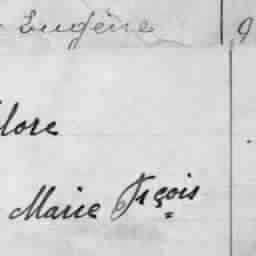 Eugène 9
lore
Marie Frçois